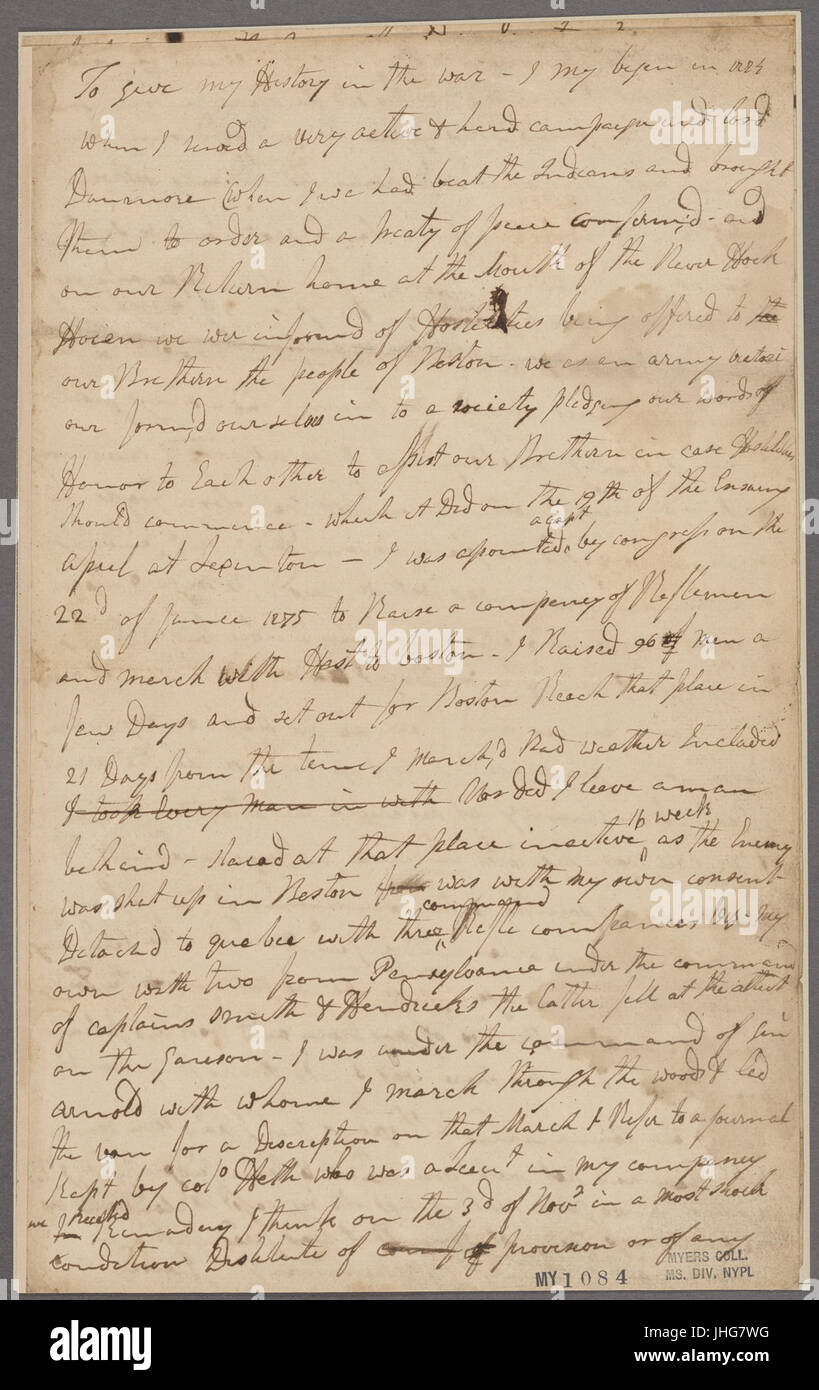 To give my History in the war - I my begen in 1774
when I served a very active & hard campaign under lord
Dunmore when I we had beat the Indians and brought
them to order and a treaty of peace confirm,d - and
on our Return home at the Mouth of the River Hock
Hocen we wer informd of Hostileties being offered to the
our Brethern the people of Boston - we as an army
our form,d ourselves in to a society pledging our words of
Honor to Each other to assist our Brethern in case Hostilities
should commence - which it Did on the 19th of the Ensuing
april at Lexinton - I was apointed by congress on the
a capt
22d of June 1775 to Raise a company of Riflemen
and merch with Hast to boston - I Raised 96 of men a
few Days and set out for Boston Reach that place in
21 Days from the time I march,d Bad weather Included
I took Every man in with Nor did I leave a man
behind - staed at that place inactive as the Enemy
16 week
was shut up in Boston was with my own consent -
Detach,d to quebec with three Rifle companies my
command
own with two from Pensylvania under the command
of captains smith & Hendricks the latter fell at the attact
on the Gareson - I was under the command of Gin
arnold with whome I march through the woods & led
the van for a Discreption on that March I Refer to a Journal
Kept by colo Heth who was a Leeut in my compeny
we reached
In Cannadey I think on the 3d of Novr in a most shock
condition Distitute of provision or of any
MY 1084
MYERS COLL.
MS. DIV. NYPL
alamy
alamy stock photo
JHG7WG
www.alamy.com